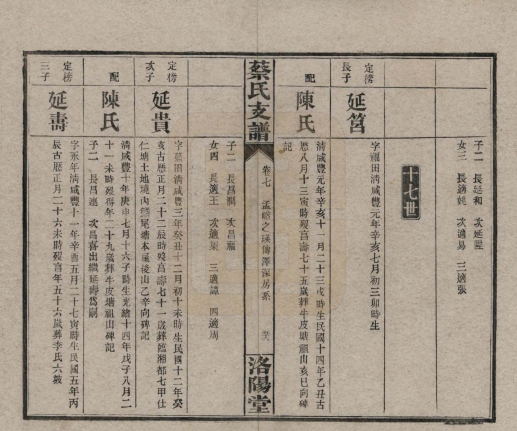 子二 長延和 次延陞
女三 長適姚 次適易 三適張
十七世
定滂長子
延筥
字福田清咸豐元年辛亥七月初三卯時生
配
陳氏
清咸豐元年辛亥十一月二十三戌時生民國十四年乙丑古
曆八月十三寅時歿宮壽七十五歲葬牛皮塘祖山亥巳向碑
記
蔡氏支譜
卷七
孟
之瑛傳澤深房系
洛陽堂
子二 長昌 次昌
女四 長適王 次適葉 三適譚 四適周
定滂次子
延貴
字藝田清咸豐三年癸丑十二月初十未時生民國十二年癸
亥古曆正月二十二辰時歿宮壽七十一歲葬臨湘都七甲仕
仁塘土地境內鴨尾塘本屋後山乙辛向碑記
配
陳氏
清咸豐十年庚申七月十六子時生光緒十四年戊子八月二
十一未時歿得年二十九歲葬牛皮塘祖山碑記
子二 長昌連 次昌喜出繼延壽爲嗣
定滂三子
延壽
字永年清咸豐十一年辛酉五月二十七寅時生民國五年丙
辰古曆二月二十六未時歿宮年五十六歲葬李氏六畝